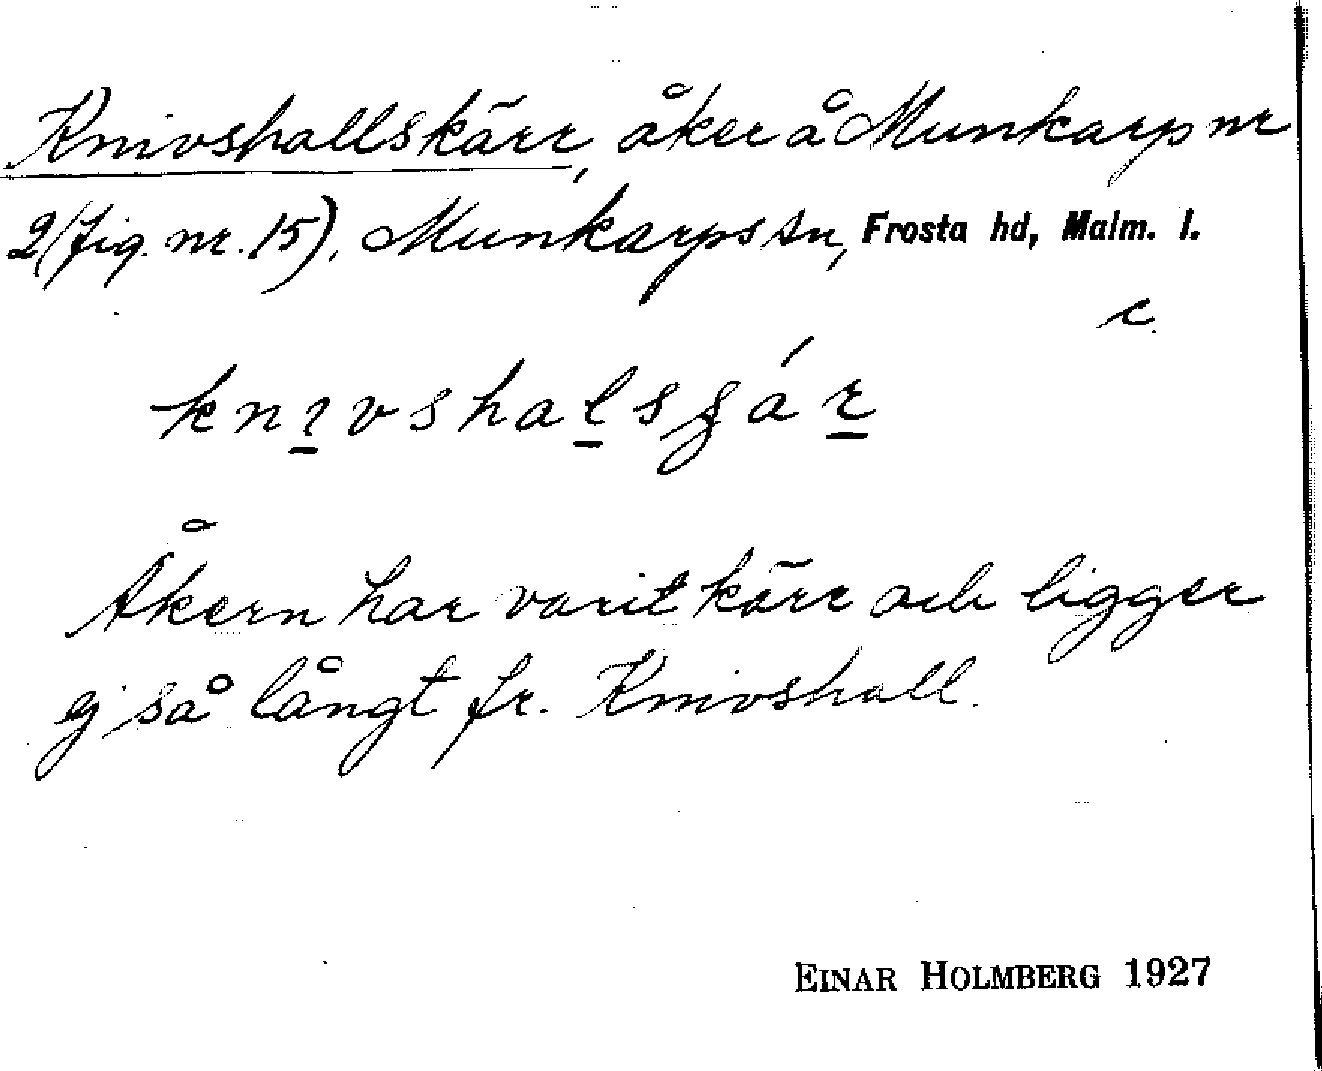 Knivshallskärr, åker å Munkarp nr
2 (fig. nr. 15), Munkarps sn, Frosta hd, Malm. l.
c.
knɩvshalsʝár
Åkern har varit kärr och ligger
ej så långt fr. Knivshall.
EINAR HOLMBERG 1927